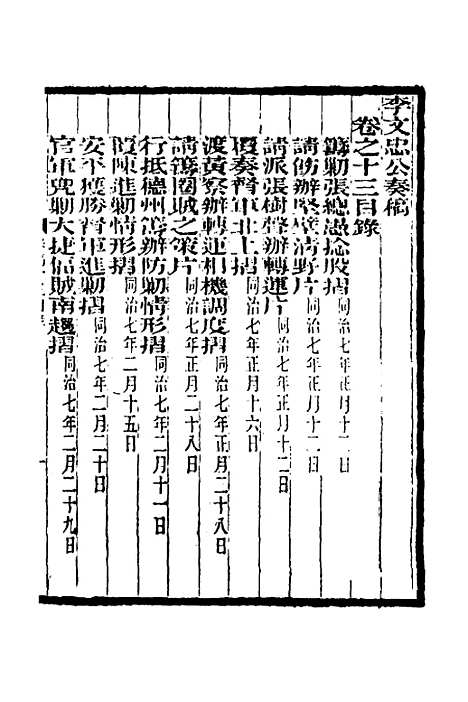 李文忠公奏稿
卷之十三目錄
籌勦張總愚捻股摺同治七年正月十二日
請飭辦堅壁清野片同治七年正月十二日
請派張樹聲辦轉運片同治七年正月十二日
覆奏督軍北上摺同治七年正月十六日
渡黃察辦轉運相機調度摺同治七年正月二十八日
請籌圈賊之策片同治七年正月二十八日
行抵德州籌辦防勦情形摺同治七年二月十一日
覆陳進勦情形摺同治七年二月十五日
安平獲勝督軍進勦摺同治七年二月二十日
官軍兜勦大捷偪賊南趨摺同治七年二月二十九日